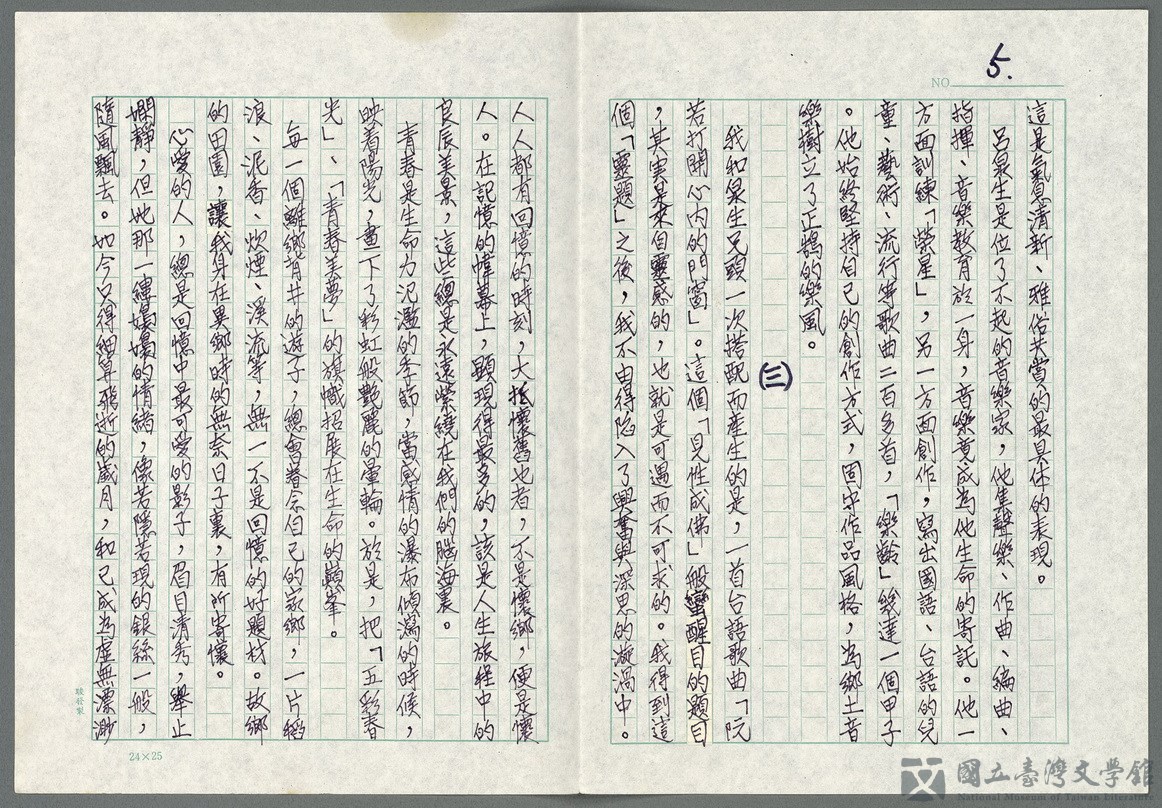 NO 5.
這是氣息清新、雅俗共賞的最具体的表現。
呂泉生是位了不起的音樂家，他集聲樂、作曲、編曲、
指揮、音樂教育於一身，音樂竟成為他生命的寄託。他一
方面訓練「榮星」，另一方面創作，寫出國語、台語的兒
童、藝術、流行等歌曲二百多首，「樂齡」幾達一個甲子
。他始終堅持自己的創作方式，固守作品風格，為鄉土音
樂樹立了正鵠的樂風。
(三)
我和泉生兄頭一次搭配而產生的是，一首台語歌曲「阮
若打開心內的門窗」。這個「見性成佛」般蠻醒目的題目
，其實是來自靈感的，也就是可遇而不可求的。我得到這
個「靈題」之後，我不由得陷入了興奮與深思的漩渦中。
人人都有回憶的時刻，大抵懷舊也者，不是懷鄉，便是懷
人。在記憶的幃幕上，顯現得最多的，該是人生旅程中的
良辰美景，這些總是永遠縈繞在我們的腦海裏。
青春是生命力氾濫的季節，當感情的瀑布傾瀉的時候，
映着陽光，畫下了彩虹般艷麗的暈輪。於是，把「五彩春
光」、「青春美夢」的旗幟招展在生命的巔峯。
每一個離鄉背井的遊子，總會眷念自己的家鄉，一片稻
浪、泥香、炊煙、溪流等，無一不是回憶的好題材。故鄉
的田園，讓我身在異鄉時的無奈日子裏，有所寄懷。
心愛的人，總是回憶中最可愛的影子，眉目清秀，舉止
嫻靜，但她那一縷嫋嫋的情緒，像若隱若現的銀絲一般，
隨風飄去。如今只得細算飛逝的歲月，和已成為虛無漂渺
24×25
國立臺灣文學館
National Museum of Taiwan Literature